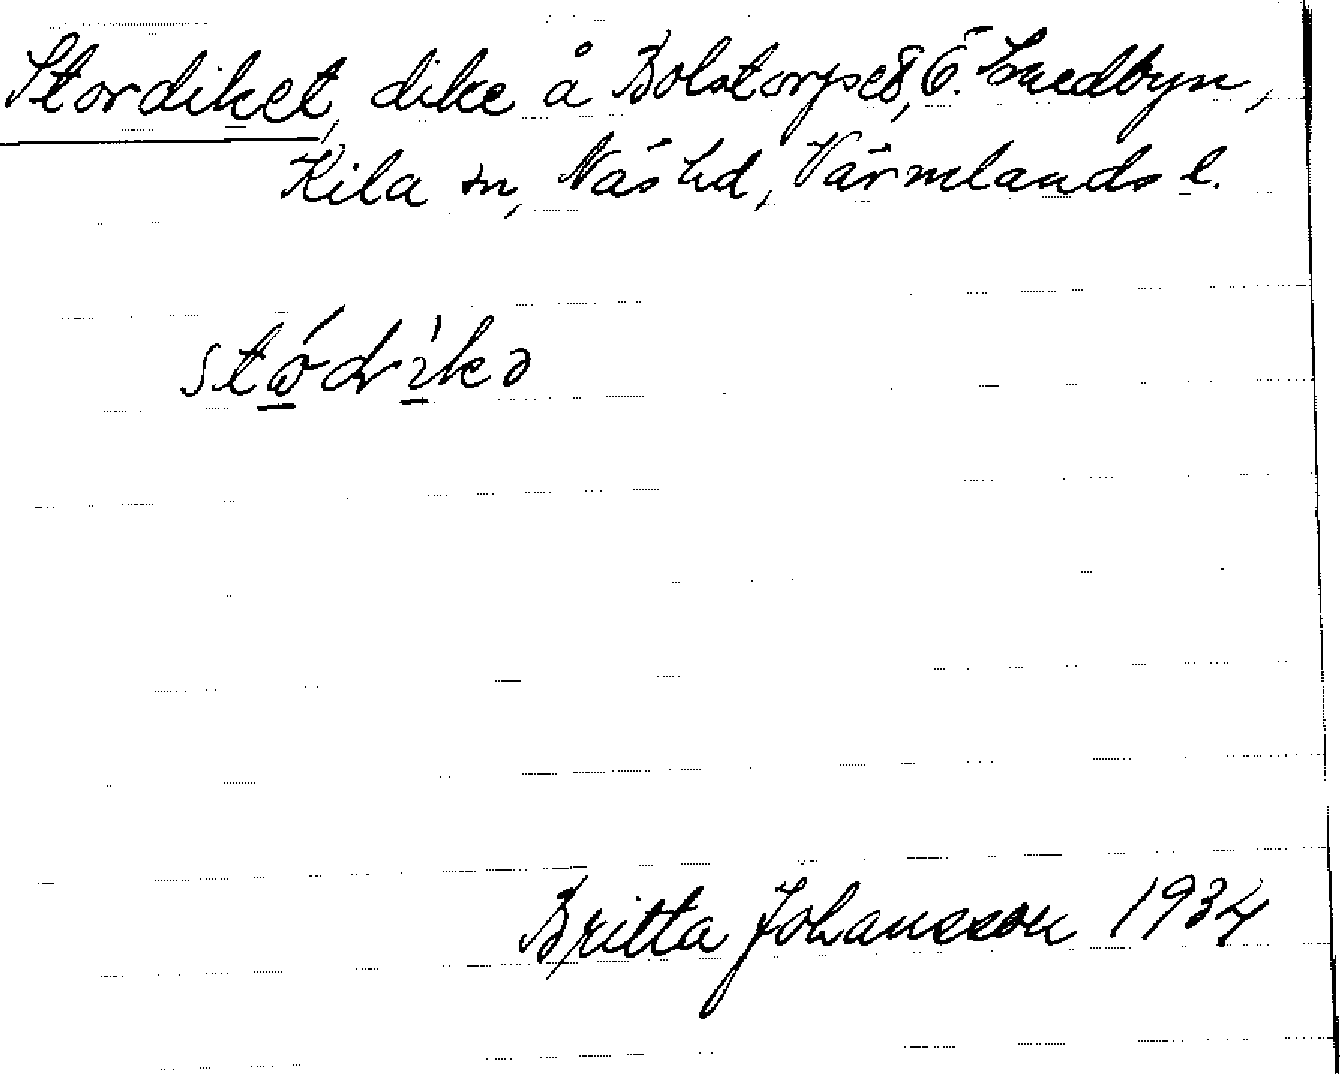 Stordiket, dike å Bolstorp, Ö. Smedbyn,
Kila sn, Näs hd, Värmlands l.
Britta Johansson 1934